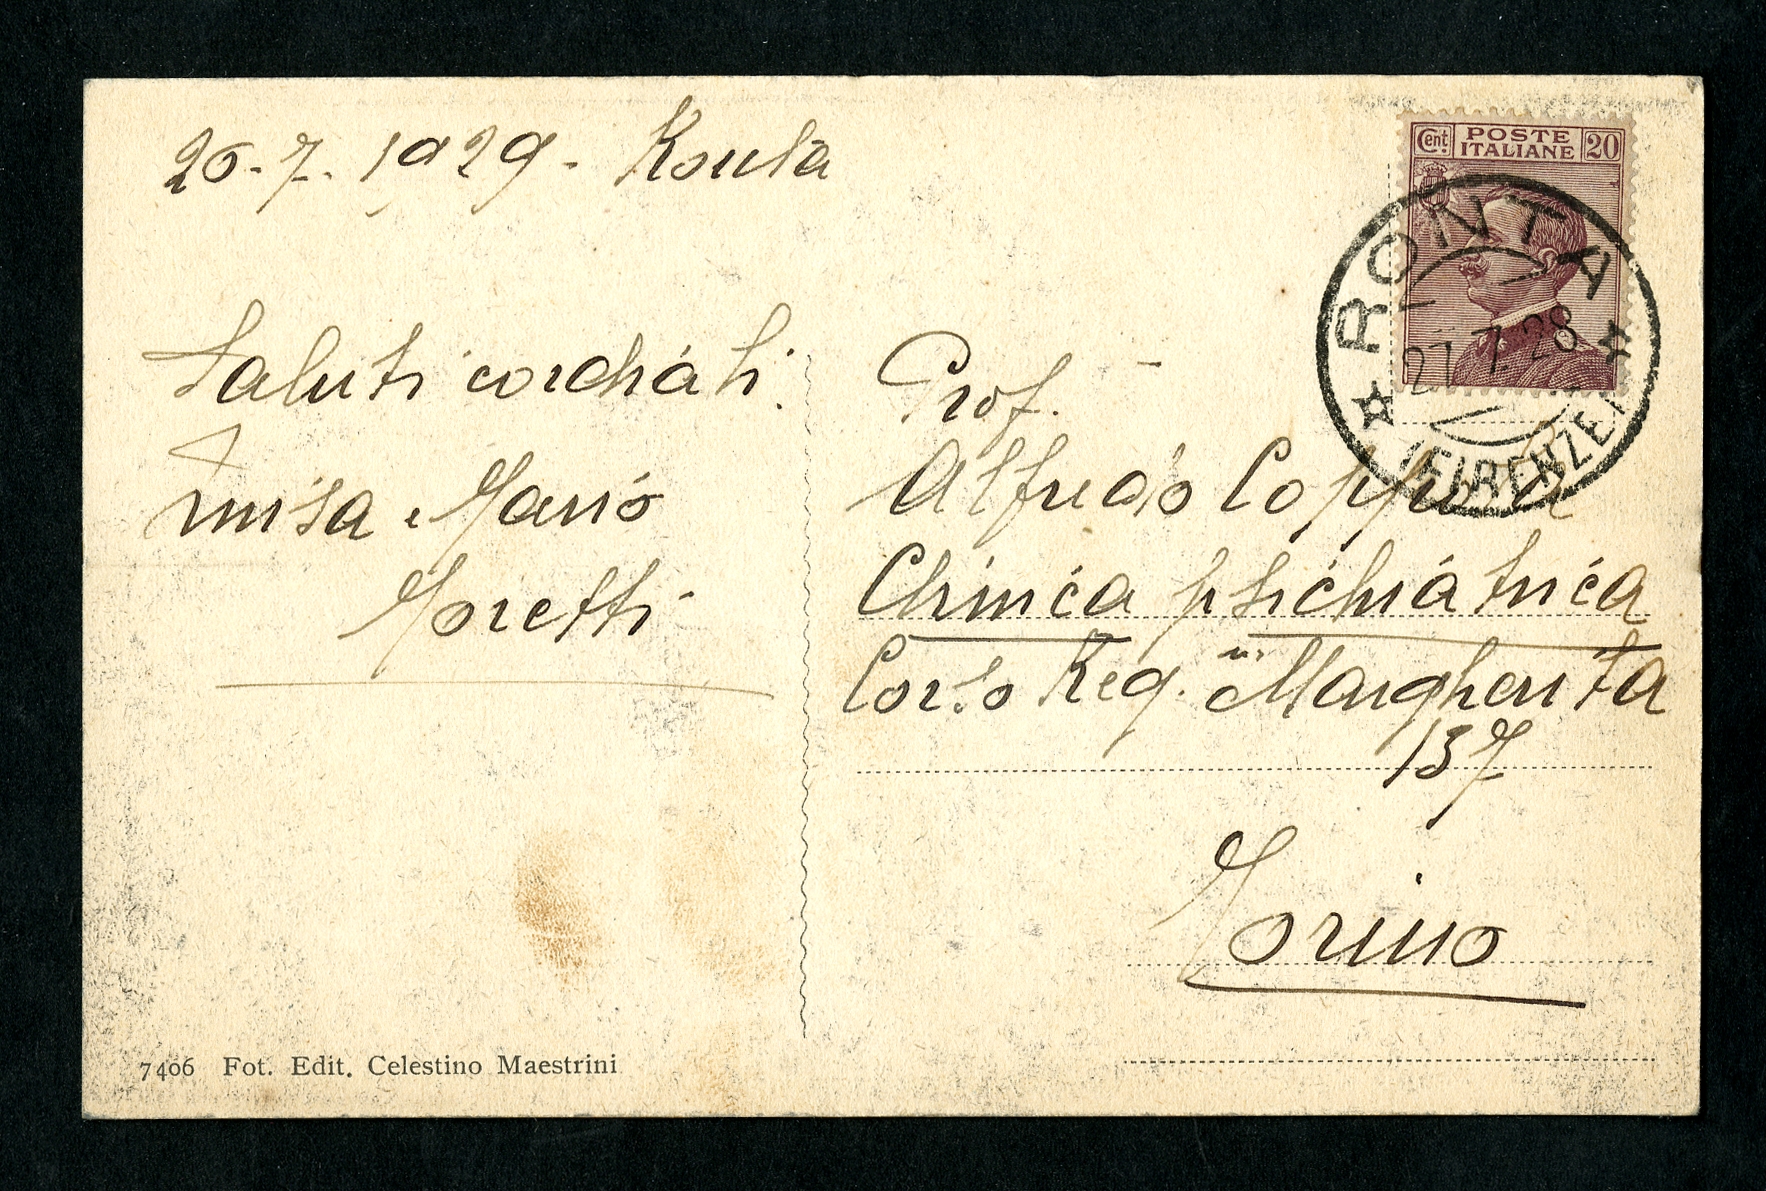 26.7.1929. Ronta
Saluti cordiali.
Luisa e Mario
Moretti
7406 Fot. Edit. Celestino Maestrini
Cent. POSTE ITALIANE 20
RONTA
27.7.28
(FIRENZE)
Prof.
Alfredo Coppola
Clinica psichiatrica
Corso Reg. Margherita
137
Torino